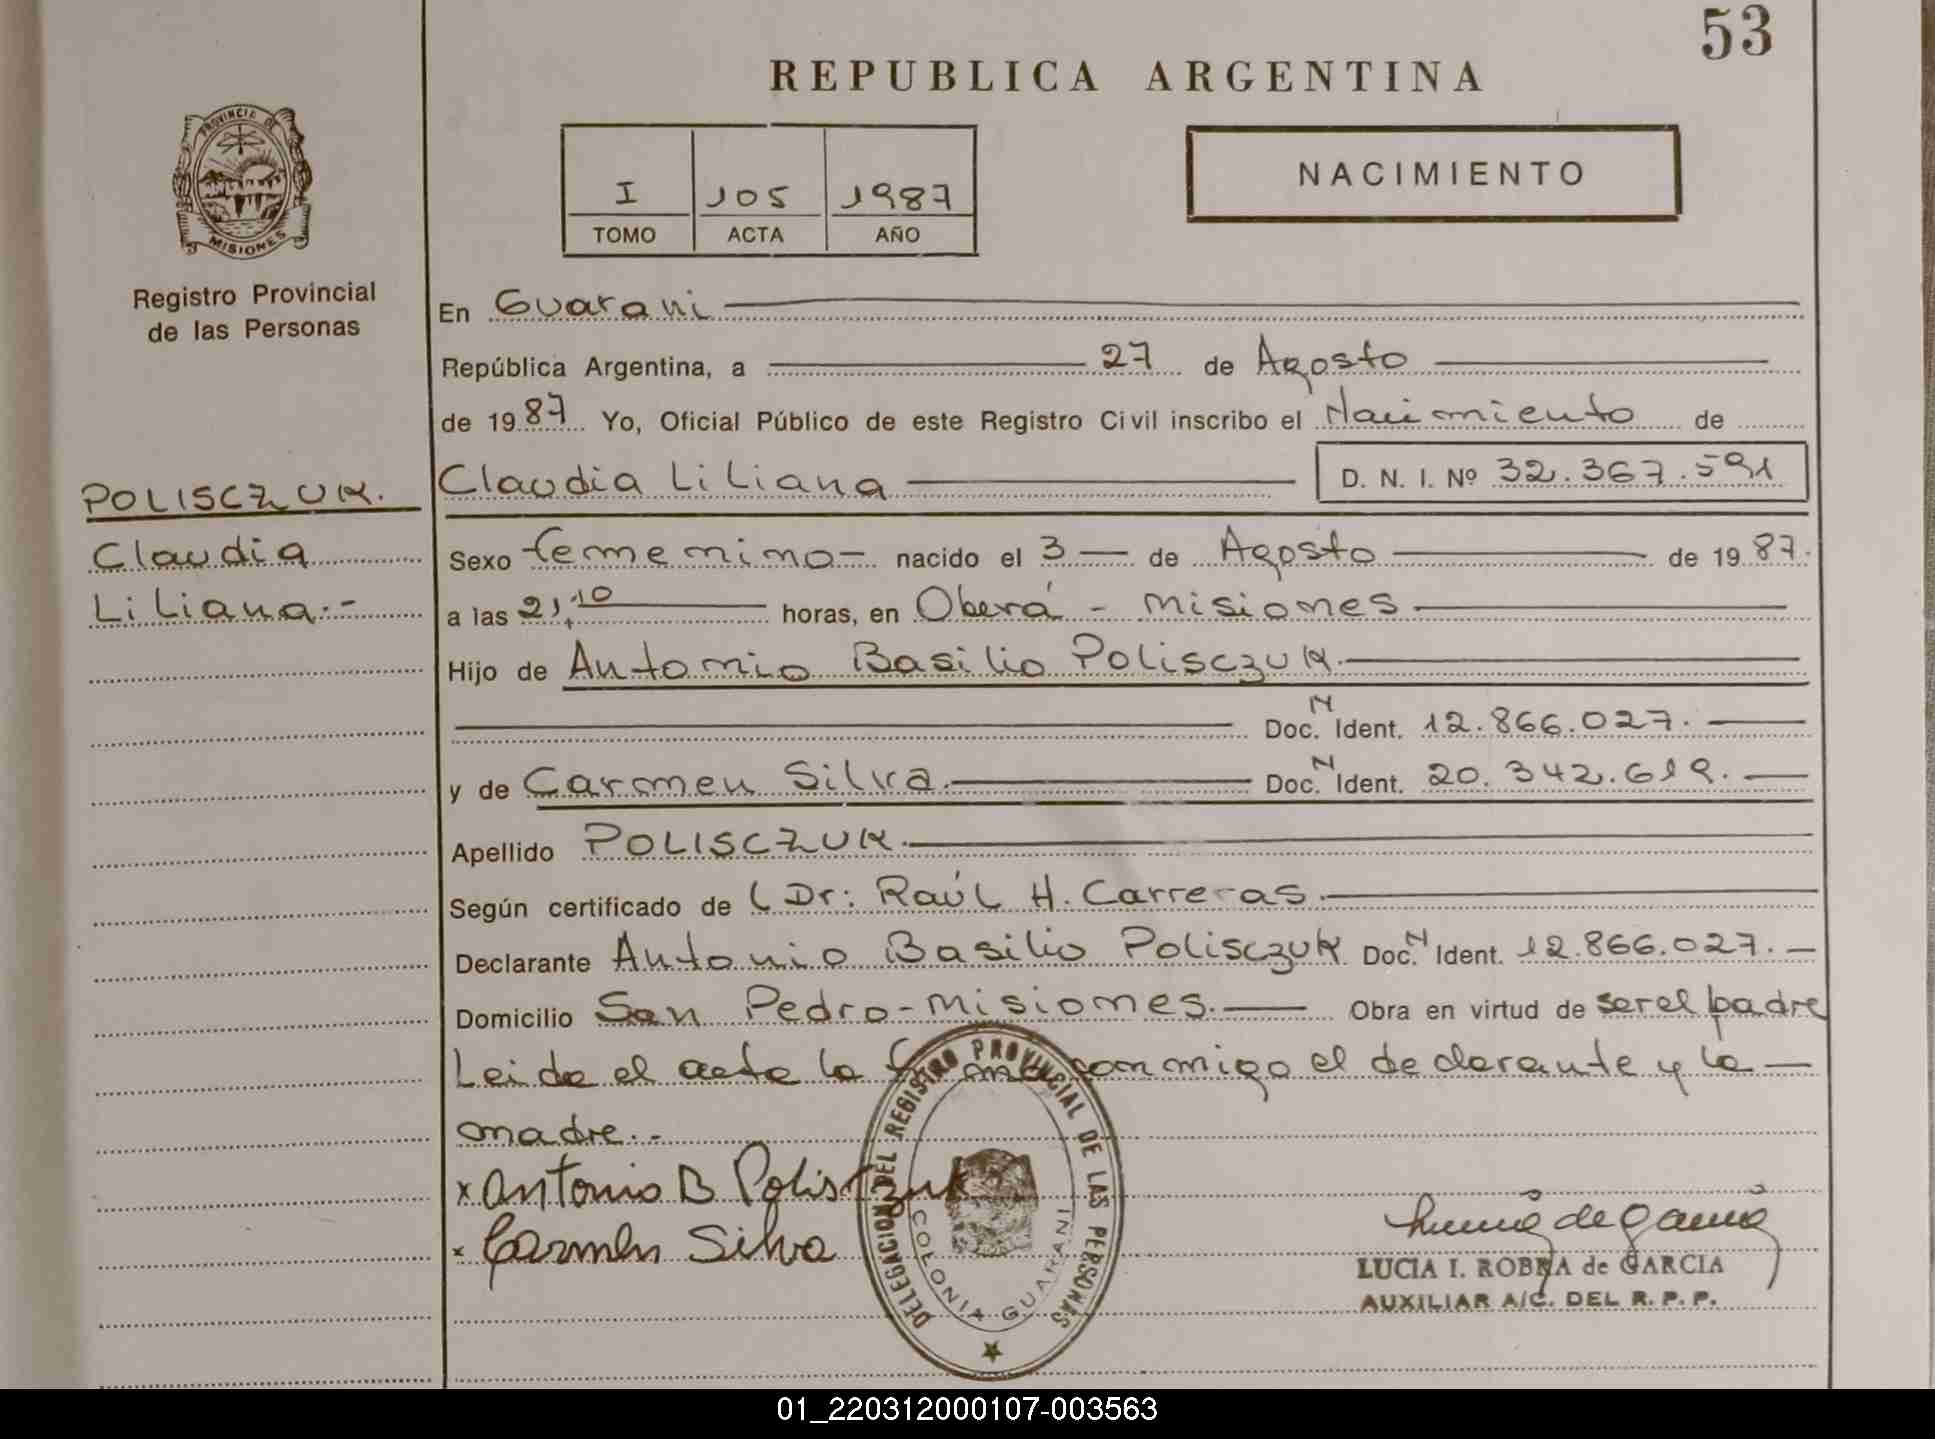 53
REPUBLICA ARGENTINA
PROVINCIA DE
MISIONES
Registro Provincial
de las Personas
I 105 1987
TOMO ACTA AÑO
NACIMIENTO
En Guarani
República Argentina, a 27 de Agosto
de 1987 Yo, Oficial Público de este Registro Civil inscribo el Nacimiento de
POLISCZUK.
Claudia
Liliana.-
Claudia Liliana D. N. I. Nº 32.367.591
Sexo femenino- nacido el 3 de Agosto de 1987.
a las 21,10 horas, en Oberá - Misiones
Hijo de Antonio Basilio POLISCZUK.
Doc. N Ident. 12.866.027.
y de Carmen Silva. Doc. N Ident. 20.342.619.
Apellido POLISCZUK.
Según certificado de L Dr: Raúl H. Carreras.
Declarante Antonio Basilio POLISCZUK Doc. N Ident. 12.866.027.-
Domicilio San Pedro-Misiones. Obra en virtud de ser el padre
Leida el acta la firma conmigo el declarante y la
madre.-
x Antonio B Polisczuk
x Carmen Silva
DELEGACION DEL REGISTRO PROVINCIAL DE LAS PERSONAS
COLONIA GUARANI
Lucia de Garcia
LUCIA I. ROBRA de GARCIA
AUXILIAR A/C. DEL R. P. P.
01_220312000107-003563